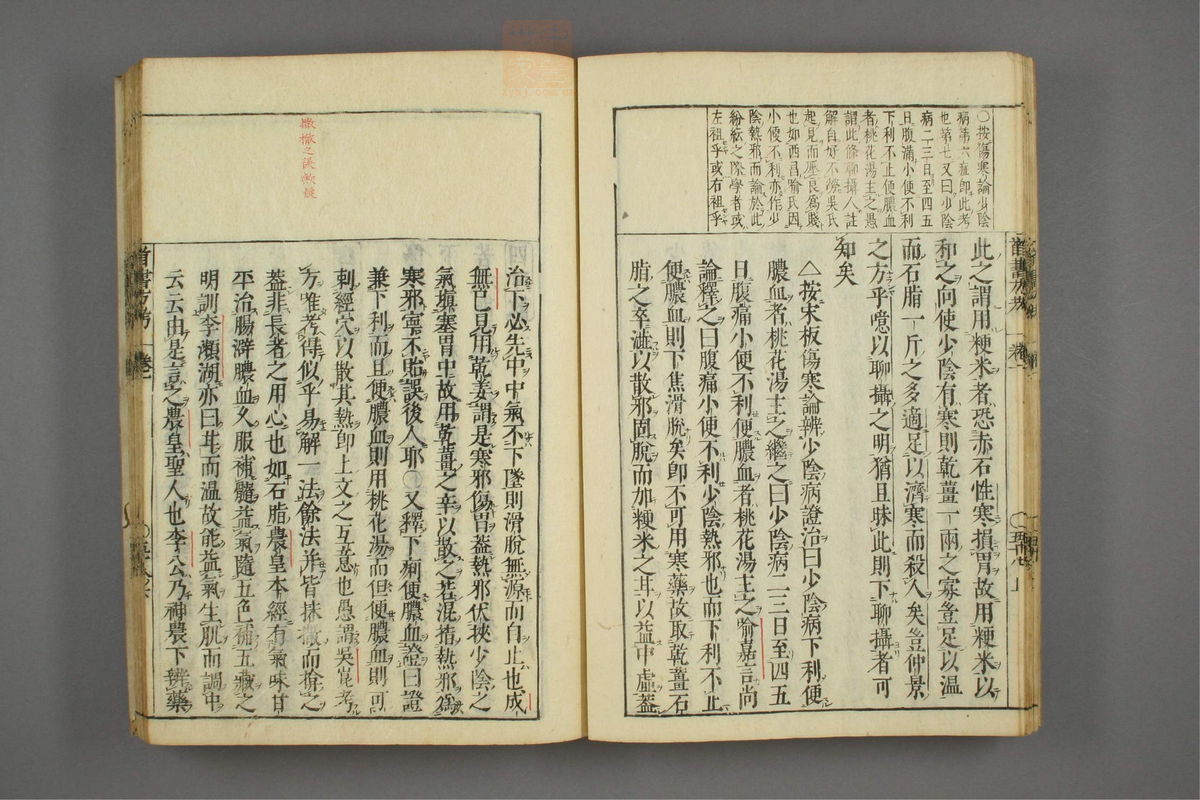 ○按傷寒論少陰
病第六症即此考
也第七又曰少陰
病二三日至四五
日腹滿小便不利
下利不止便膿血
者桃花湯主之愚
謂此條聊攝人註
解自好不滲吳氏
起見而壓良為賤
也如西昌喻氏因
小便不利亦作少
陰熱邪而論於此
紛紜之際學者或
左祖乎或右祖乎
此之謂用粳米者恐赤石性寒損胃故用粳米以
和之向使少陰有寒則乾薑一兩之寡豈足以溫
而石脂一斤之多適足以濟寒而殺人矣豈仲景
之方乎噫以聊攝之明猶且昧此則下聊攝者可
知矣
△按宋板傷寒論辨少陰病證治曰少陰病下利便
膿血者桃花湯主之繼之曰少陰病二三日至四五
日腹痛小便不利便膿血者桃花湯主之喻嘉言尚
論釋之曰腹痛小便不利少陰熱邪也而下利不止
便膿血則下焦滑脫矣即不可用寒藥故取乾薑石
脂之辛澁以散邪固脫而加粳米之耳以益中虛蓋
治下必先中中氣不下墜則滑脫無源而自止也成
無已見用乾姜謂是寒邪傷胃蓋熱邪伏挾少陰之
氣塡塞胃中故用乾薑之辛以散之若混指熱邪爲
寒邪寧不貽誤後人耶○又釋下痢便膿血證曰證
兼下利而且便膿血則用桃花湯而但便膿血則可
刺經穴以散其熱即上文之互意也愚謂吳崑考
方唯考得似乎易解一法餘法并皆抹撤而揜之
蓋非長者之用心也如石脂農皇本經有氣味甘
平治腸澼膿血久服補髓益氣隨五色補五臟之
明訓李瀕湖亦曰甘而溫故能益氣生肌而調中
云云由是言之農皇聖人也李公乃神農下辨藥
首書方考
卷一